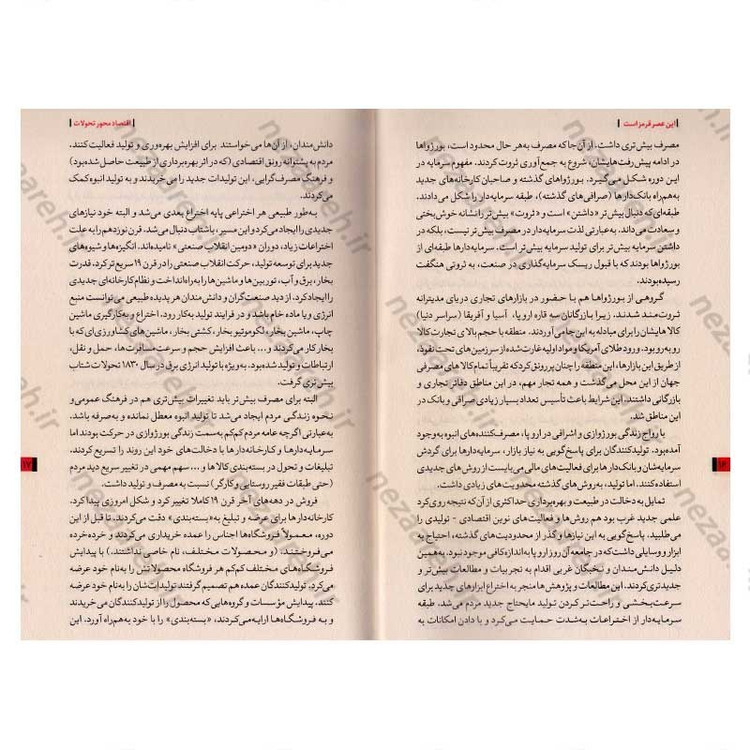 این عصر قرمز است
مصرف بیش‌تری داشت. از آن‌جا که مصرف به‌هر حال محدود است، بورژواها
در ادامه پیش‌رفت‌هایشان، شروع به جمع‌آوری ثروت کردند. مفهوم سرمایه در
این دوره شکل می‌گیرد. بورژواهای گذشته و صاحبان کارخانه‌های جدید
به‌همراه بانک‌دارها (صرافی‌های گذشته)، طبقه سرمایه‌دار را شکل می‌دادند.
طبقه‌ای که دنبال بیش‌تر «داشتن» است و «ثروت» بیش‌تر را نشانه خوش‌بختی
و سعادت می‌داند. به‌عبارتی لذت سرمایه‌دار در مصرف بیش‌تر نیست، بلکه در
داشتن سرمایه بیش‌تر برای تولید سرمایه بیش‌تر است. سرمایه‌دارها طبقه‌ای از
بورژواها بودند که با قبول ریسک سرمایه‌گذاری در صنعت، به ثروتی هنگفت
رسیده بودند.
گروهی از بورژواها هم با حضور در بازارهای تجاری دریای مدیترانه
ثروت‌مند شدند. زیرا بازرگانان سه قاره اروپا، آسیا و آفریقا (سراسر دنیا)
کالاهایشان را برای مبادله به این‌جا می‌آوردند. منطقه با حجم بالای تجارت کالا
روبه‌رو بود. ورود طلای آمریکا و مواد اولیه غارت‌شده از سرزمین‌های تحت نفوذ،
از طریق این بازارها، این منطقه را چنان پررونق کرد که تقریباً تمام کالاهای مصرفی
جهان از این محل می‌گذشت و همه تجار مهم، در این مناطق دفاتر تجاری و
بازرگانی داشتند. این شرایط باعث تأسیس تعداد بسیار زیادی صرافی و بانک در
این مناطق شد.
با رواج زندگی بورژوازی و اشرافی در اروپا، مصرف‌کننده‌های انبوه به‌وجود
آمده بود. تولیدکنندگان برای پاسخ‌گویی به نیاز بازار، سرمایه‌دارها برای گردش
سرمایه‌شان و بانک‌دارها برای فعالیت‌های مالی می‌بایست از روش‌های جدیدی
استفاده کنند. اما تولید، به‌روش‌های گذشته محدویت‌های زیادی داشت.
تمایل به دخالت در طبیعت و بهره‌برداری حداکثری از آن که نتیجه روی‌کرد
علمی جدید غرب بود هم روش‌ها و فعالیت‌های نوین اقتصادی - تولیدی را
می‌طلبید. پاسخ‌گویی به این نیازها و گذر از محدودیت‌های گذشته، احتیاج به
ابزار و وسایلی داشت که در جامعه آن روز اروپا به‌اندازه کافی موجود نبود. به‌همین
دلیل دانش‌مندان و نخبگان غربی اقدام به تجربیات و مطالعات بیش‌تر و
جدیدتری کردند. این مطالعات و پژوهش‌ها منجر به اختراع ابزارهای جدید برای
سرعت‌بخشی و راحت‌تر کردن تولید مایحتاج جدید مردم می‌شد. طبقه
سرمایه‌دار از اختراعات به‌شدت حمایت می‌کرد و با دادن امکانات به
۱۶
اقتصاد محور تحولات
دانش‌مندان، از آن‌ها می‌خواستند برای افزایش بهره‌وری و تولید فعالیت کنند.
مردم به پشتوانه رونق اقتصادی (که در اثر بهره‌برداری از طبیعت حاصل شده بود)
و فرهنگ مصرف‌گرایی، این تولیدات جدید را می‌خریدند و به تولید انبوه کمک
می‌کردند.
به‌طور طبیعی هر اختراعی پایه اختراع بعدی می‌شد و البته خود نیازهای
جدیدی را ایجاد می‌کرد و این مسیر، باشتاب دنبال می‌شد. قرن نوزدهم را به علت
اختراعات زیاد، دوران «دومین انقلاب صنعتی» نامیده‌اند. انگیزه‌ها و شیوه‌های
جدید برای توسعه تولید، حرکت انقلاب صنعتی را در قرن ۱۹ سریع‌تر کرد. قدرت
بخار، برق و آب، توربین‌ها و ماشین‌ها را به‌راه انداخت و نظام کارخانه‌ای جدیدی
را ایجاد کرد. از دید صنعت‌گران و دانش‌مندان هر پدیده طبیعی می‌توانست منبع
انرژی و یا ماده خام باشد و در فرایند تولید به‌کار رود. اختراع و به‌کارگیری ماشین
چاپ، ماشین بخار، لکوموتیو بخار، کشتی بخار، ماشین‌های کشاورزی‌ای که با
بخار کار می‌کردند و... باعث افزایش حجم و سرعت مسافرت‌ها، حمل و نقل،
ارتباطات و تولید شده بود. به ویژه با تولید انرژی برق در سال ۱۸۳۰ تحولات شتاب
بیش‌تری گرفت.
البته برای مصرف بیش‌تر باید تغییرات بیش‌تری هم در فرهنگ عمومی و
نحوه زندگی مردم ایجاد می‌شد تا تولید انبوه معطل نمانده و به‌صرفه باشد.
به‌عبارتی اگرچه عامه مردم کم‌کم به‌سمت زندگی بورژوازی در حرکت بودند اما
سرمایه‌دارها و کارخانه‌دارها با دخالت‌های خود این روند را تسریع کردند.
تبلیغات و تحول در بسته‌بندی کالاها و... سهم مهمی در تغییر سریع دید مردم
(حتی طبقات فقیر روستایی و کارگر) نسبت به مصرف و تولید داشت.
فروش در دهه‌های آخر قرن ۱۹ کاملا تغییر کرد و شکل امروزی پیدا کرد.
کارخانه‌دارها برای عرضه و تبلیغ به «بسته‌بندی» دقت می‌کردند. تا قبل از این
دوره، معمولاً فروشگاه‌ها اجناس را عمده خریداری می‌کردند و خرده‌خرده
می‌فروختند. (و محصولات مختلف، نام خاصی نداشتند.) با پیدایش
فروشگاه‌های مختلف کم‌کم هر فروشگاه محصولاتش را به‌نام خود عرضه
می‌کرد. تولیدکنندگان عمده هم تصمیم گرفتند تولیداتشان را به‌نام خود عرضه
کنند. پیدایش مؤسسات و گروه‌هایی که محصول را از تولیدکنندگان می‌خریدند
و به فروشگاه‌ها ارایه می‌کردند، «بسته‌بندی» را با خود به‌همراه آورد. این
۱۷